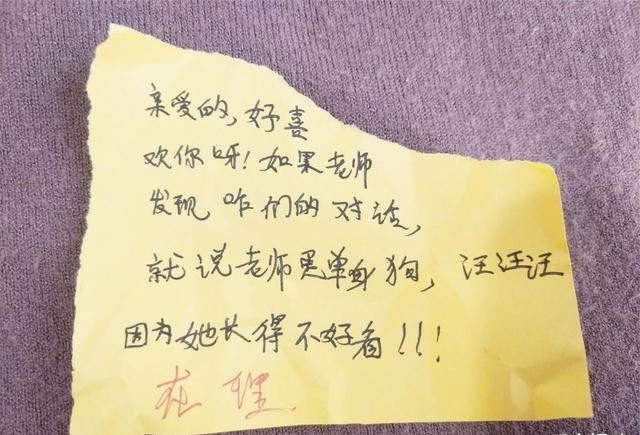 亲爱的,好喜
欢你呀!如果老师
发现咱们的对话,
就说老师是单身狗,汪汪汪
因为她长得不好看!!!
在理.